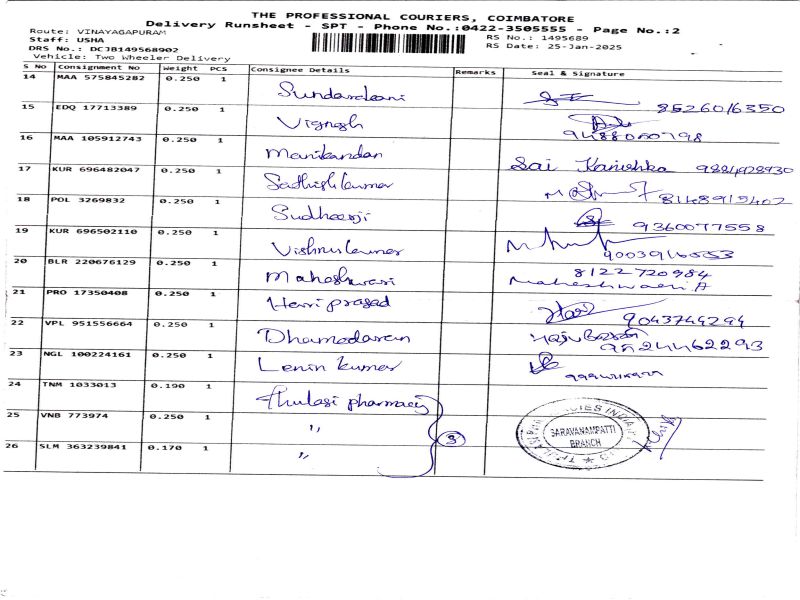 THE PROFESSIONAL COURIERS, COIMBATORE
Delivery Runsheet - SPT - Phone No.:0422-3505555 - Page No.:2
Route: VINAYAGAPURAM
RS No.: 1495689
Staff: USHA
RS Date: 25-Jan-2025
DRS No.: DCJB149568902
Vehicle: Two Wheeler Delivery
S No Consignment No Weight PCS Consignee Details Remarks Seal & Signature
14 MAA 575845282 0.250 1 8526016350
15 EDQ 17713389 0.250 1 Vignesh 9488050798
16 MAA 105912743 0.250 1 Manikandan Sai Kanishka 9884928930
17 KUR 696482047 0.250 1 Sathishkumar 8148915402
18 POL 3269832 0.250 1 Sudheerji 9360077558
19 KUR 696502110 0.250 1 Vishnukumar 9003916553
20 BLR 220676129 0.250 1 Maheshwari 8122720984 Maheshwari A
21 PRO 17350408 0.250 1 Hariprasad 9043744294
22 VPL 951556664 0.250 1 Dhamodaran 9524462293
23 NGL 100224161 0.250 1 Lenin kumar
24 TNM 1033013 0.190 1 Thulasi pharmacy
25 VNB 773974 0.250 1 "
3
26 SLM 363239841 0.170 1 "
SARAVANAMPATTI
BRANCH